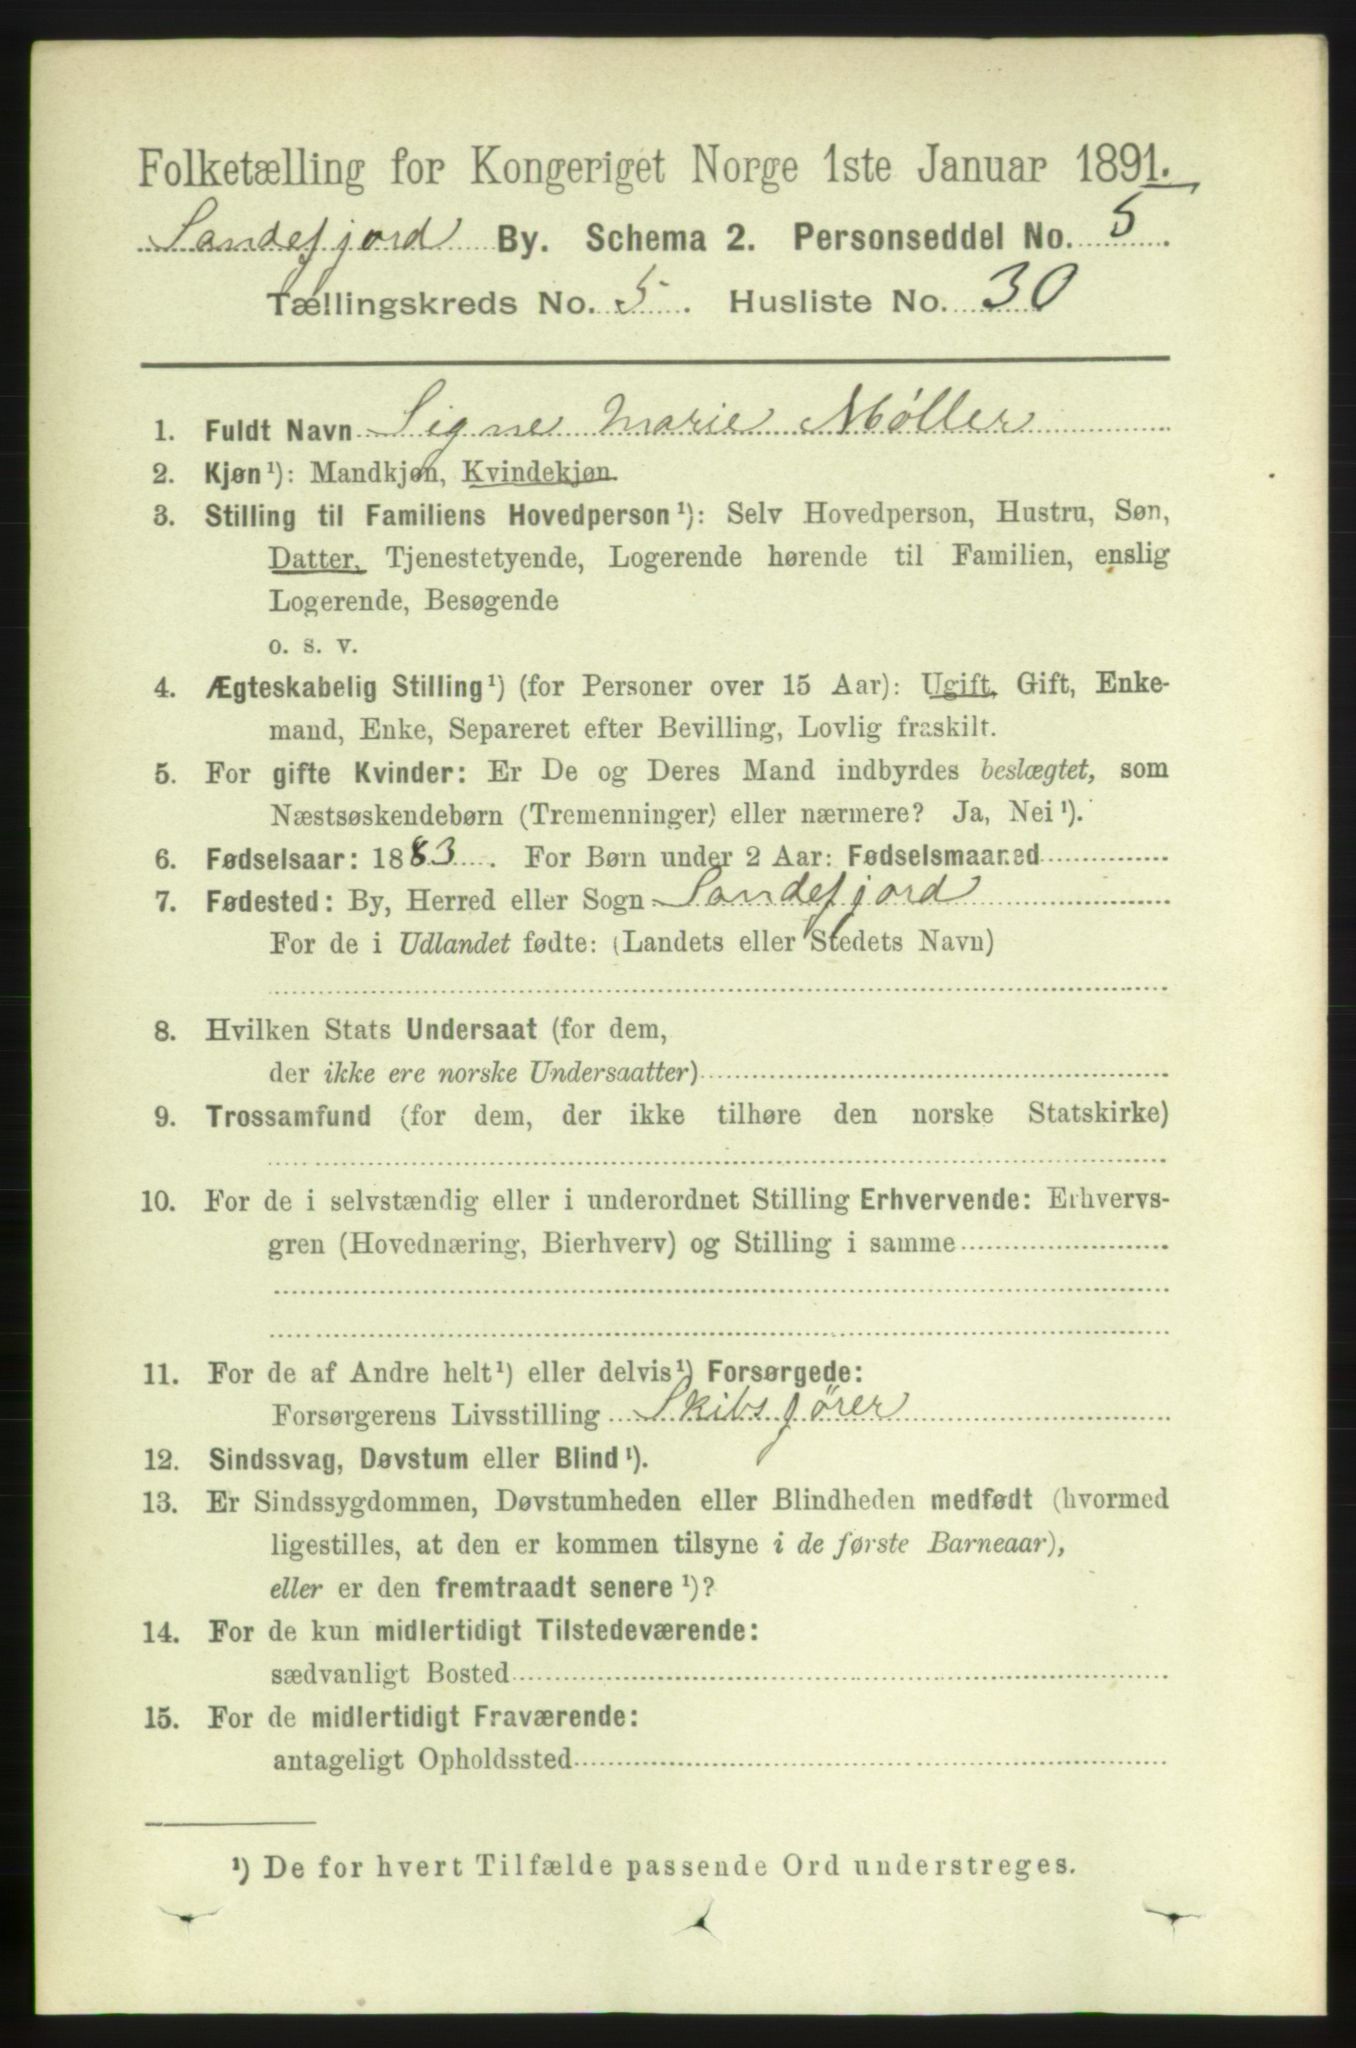 Folketælling for Kongeriget Norge 1ste Januar 1891.
Sandefjord By. Schema 2. Personseddel No. 5.
Tællingskreds No. 5. Husliste No. 30
1. Fuldt Navn Signe Marie Møller
2. Kjøn¹): Mandkjøn, Kvindekjøn.
3. Stilling til Familiens Hovedperson¹): Selv Hovedperson, Hustru, Søn,
Datter, Tjenestetyende, Logerende hørende til Familien, enslig
Logerende, Besøgende
o. s. v.
4. Ægteskabelig Stilling¹) (for Personer over 15 Aar): Ugift, Gift, Enke-
mand, Enke, Separeret efter Bevilling, Lovlig fraskilt.
5. For gifte Kvinder: Er De og Deres Mand indbyrdes beslægtet, som
Næstsøskendebørn (Tremenninger) eller nærmere? Ja, Nei¹).
6. Fødselsaar: 1883. For Børn under 2 Aar: Fødselsmaaned
7. Fødested: By, Herred eller Sogn Sandefjord
For de i Udlandet fødte: (Landets eller Stedets Navn)
8. Hvilken Stats Undersaat (for dem,
der ikke ere norske Undersaatter)
9. Trossamfund (for dem, der ikke tilhøre den norske Statskirke)
10. For de i selvstændig eller i underordnet Stilling Erhvervende: Erhvervs-
gren (Hovednæring, Bierhverv) og Stilling i samme
11. For de af Andre helt¹) eller delvis¹) Forsørgede:
Forsørgerens Livsstilling Skibsfører
12. Sindssvag, Døvstum eller Blind¹).
13. Er Sindssygdommen, Døvstumheden eller Blindheden medfødt (hvormed
ligestilles, at den er kommen tilsyne i de første Barneaar),
eller er den fremtraadt senere¹)?
14. For de kun midlertidigt Tilstedeværende:
sædvanligt Bosted
15. For de midlertidigt Fraværende:
antageligt Opholdssted
¹) De for hvert Tilfælde passende Ord understreges.